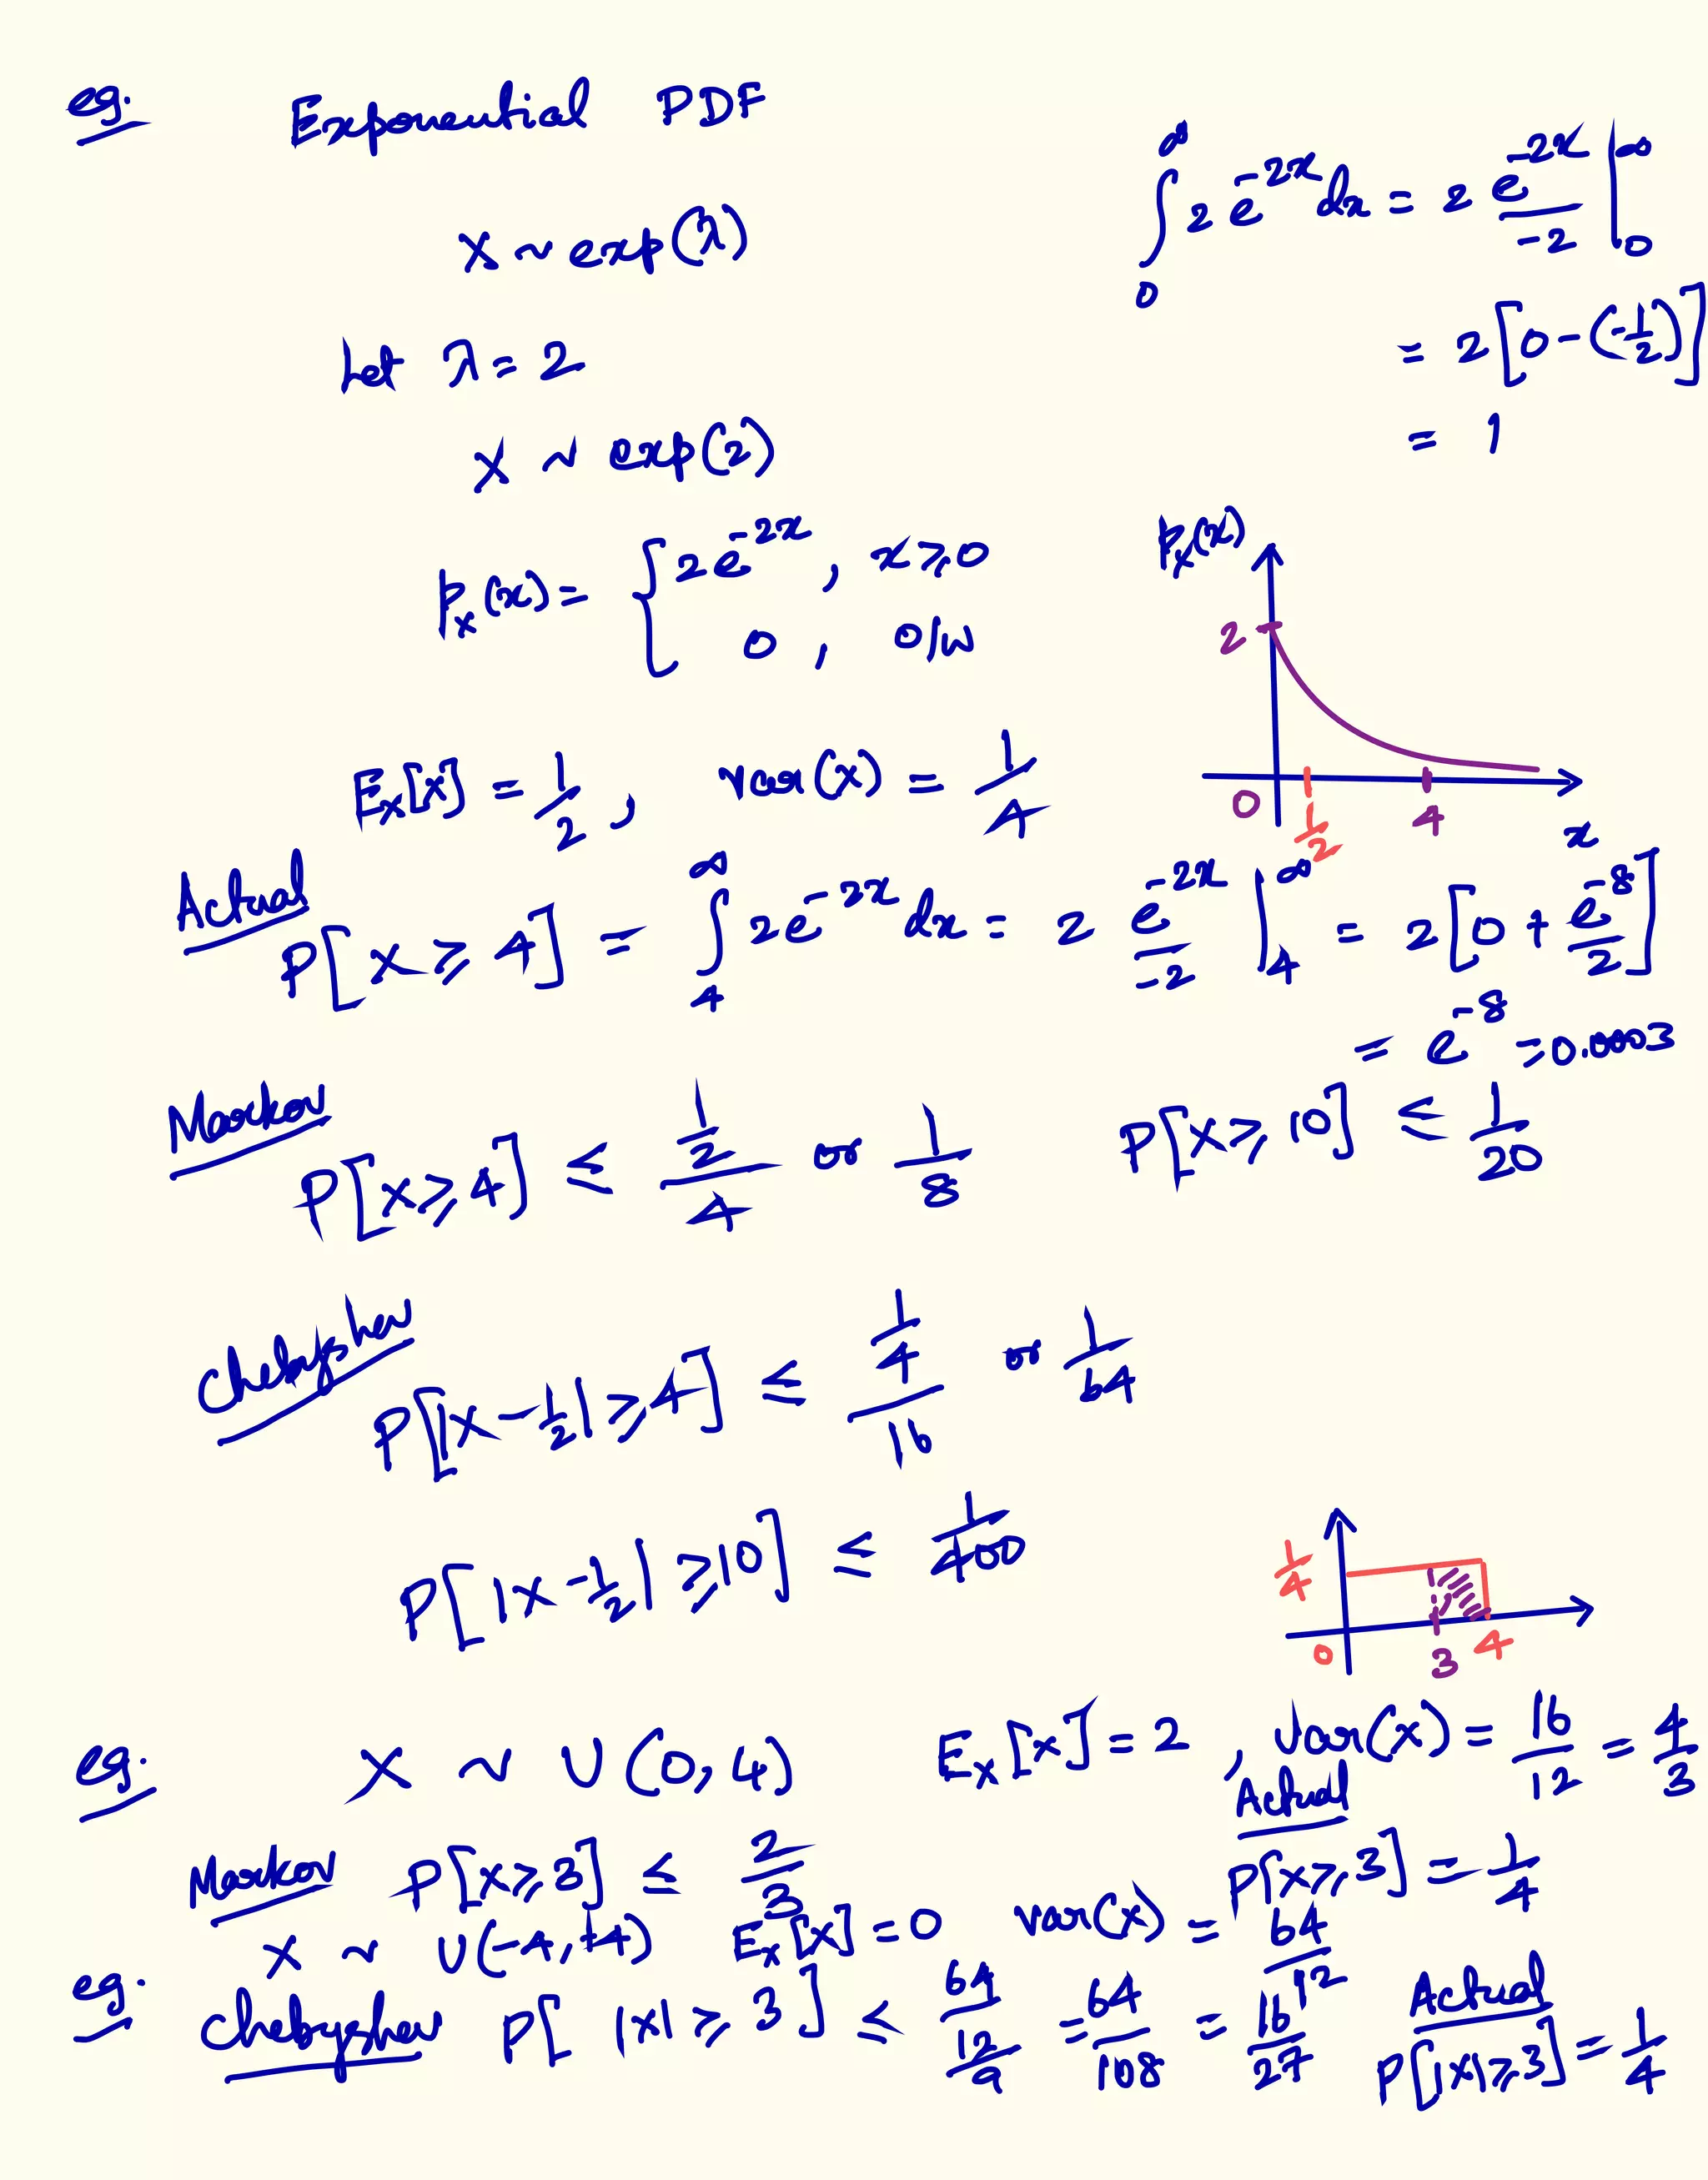 eg. Exponential PDF
X ~ exp(λ)
∫₀^∞ 2 e^{-2x} dx = 2 e^{-2x}/-2 |₀^∞
= 2[0-(-1/2)]
Let λ = 2
= 1
X ~ exp(2)
p_X(x) = { 2e^{-2x}, x ≥ 0
0, o/w
p_X(x)
2
0 1/2 4 x
E_X[X] = 1/2, var(X) = 1/4
Actual
P[X ≥ 4] = ∫₄^∞ 2e^{-2x} dx = 2 e^{-2x}/-2 |₄^∞ = 2[0 + e^{-8}/2]
= e^{-8} = 0.0003
Markov
P[X ≥ 4] ≤ (1/2)/4 or 1/8 P[X ≥ 10] ≤ 1/20
Chebyshev
P[|X - 1/2| ≥ 4] ≤ (1/4)/16 or 1/64
P[|X - 1/2| ≥ 10] ≤ 1/400
1/4
0 3 4
eg. X ~ U(0,4) E_X[X] = 2, Var(X) = 16/12 = 4/3
Actual
Markov P[X ≥ 3] ≤ 2/3 P[X ≥ 3] = 1/4
eg. X ~ U(-4,+4) E_X[X] = 0 var(X) = 64/12
Chebyshev P[|X| ≥ 3] ≤ 64/12/9 = 64/108 = 16/27
Actual
P[|X| ≥ 3] = 1/4